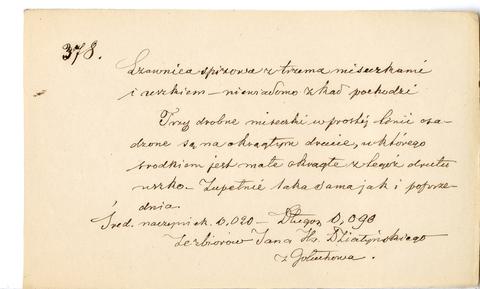 378.
Łzawnica spiżowa z trzema miseczkami
i uszkiem – niewiadomo zkąd pochodzi
Trzy drobne miseczki w prostej linie osa-
dzone są na okrągłym drucie, u którego
środkiem jest małe okrągłe z tegoż drutu
uszko. – Zupełnie taka sama jak i poprze-
dnia.
Śred. naczyniek. 0,020 – Długoś 0,090
Ze zbiorów Jana Hr. Działyńskiego
z Gołuchowa.